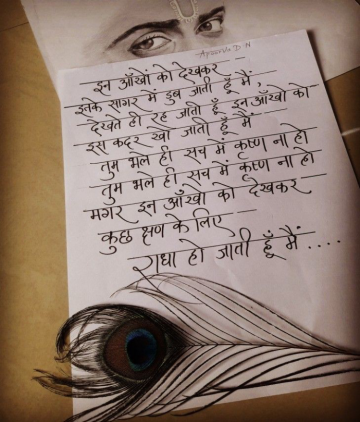 Apoorva D N
इन आँखों को देखकर
इनके सागर में डुब जाती हूँ मैं,
देखते ही रह जाती हूँ इन आँखो को
इस कदर खो जाती हूँ मैं
तुम भले ही सच में कृष्ण ना हो
तुम भले ही सच में कृष्ण ना हो
मगर इन आँखो को देखकर
कुछ क्षण के लिए
राधा हो जाती हूँ मैं ....